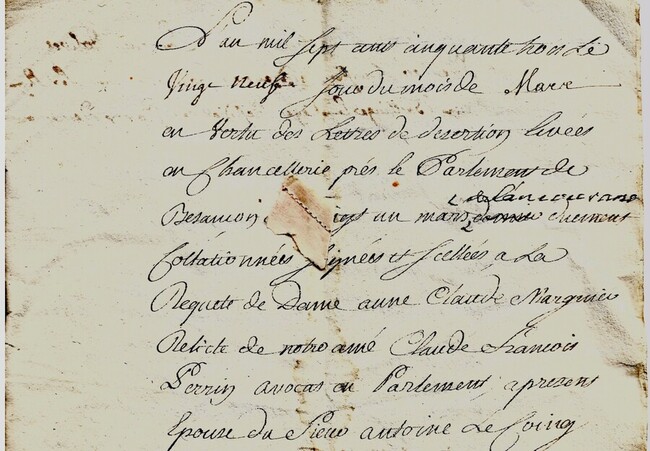 L'an mil sept cens cinquante trois Le
Vingt Neuf Jour du mois de Mars
en Vertu des Lettres de desertion levées
en Chancellerie prés le Parlement de
Besancon un mars de l'an courant duement
Collationnées signées et scellées a La
Requete de Dame anne Claude
Relicte de notre amé Claude francois
Perrin avocat en Parlement, a present
Epouse du Sieur antoine Le Coing